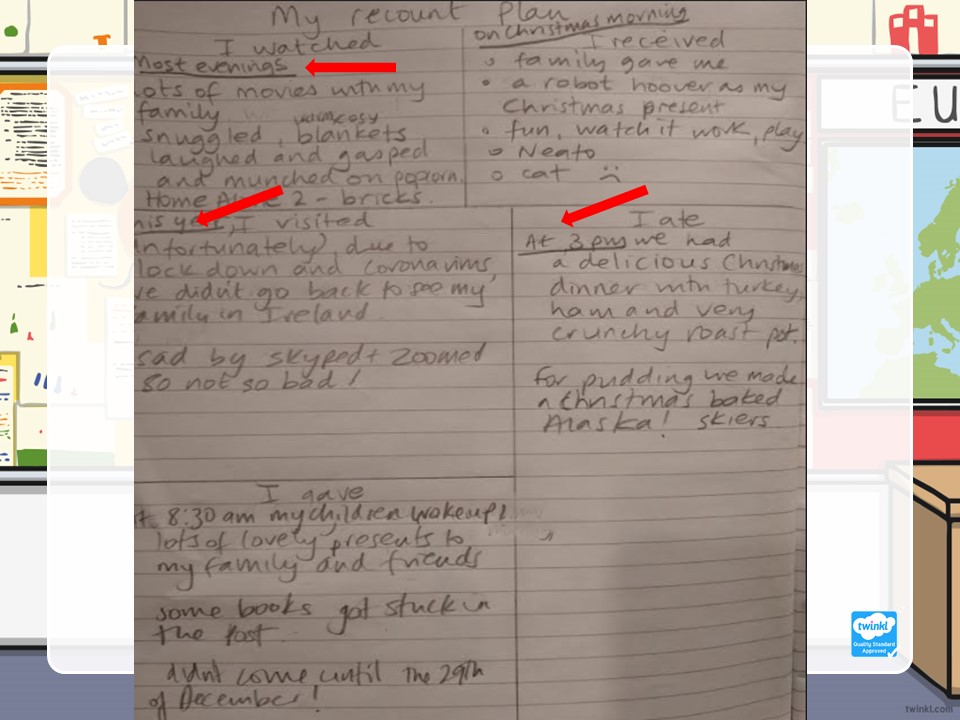 My recount Plan
I watched
Most evenings
lots of movies with my
family
warm cosy
snuggled, blankets
laughed and gasped
and munched on popcorn.
Home Alone 2 - bricks.
on Christmas morning
I received
family gave me
a robot hoover as my
Christmas present
fun, watch it work, play
Neato
cat ☹
his year, I visited
nfortunately, due to
lock down and coronavirus,
ve didn't go back to see my
family in Ireland.
sad by skyped + zoomed
so not so bad!
I ate
At 3pm we had
a delicious Christmas
dinner with turkey,
ham and very
crunchy roast pot.
For pudding we made
a Christmas baked
Alaska! skiers
I gave
t 8:30 am my children woke up!
lots of lovely presents to
my family and friends
some books got stuck in
the post.
didn't come until the 29th
of December!
EU
twinkl
Quality Standard
Approved
twinkl.com